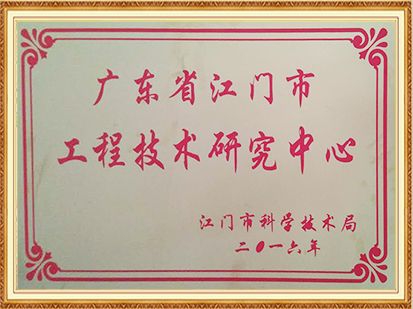 广东省江门市
工程技术研究中心
江门市科学技术局
二〇一六年